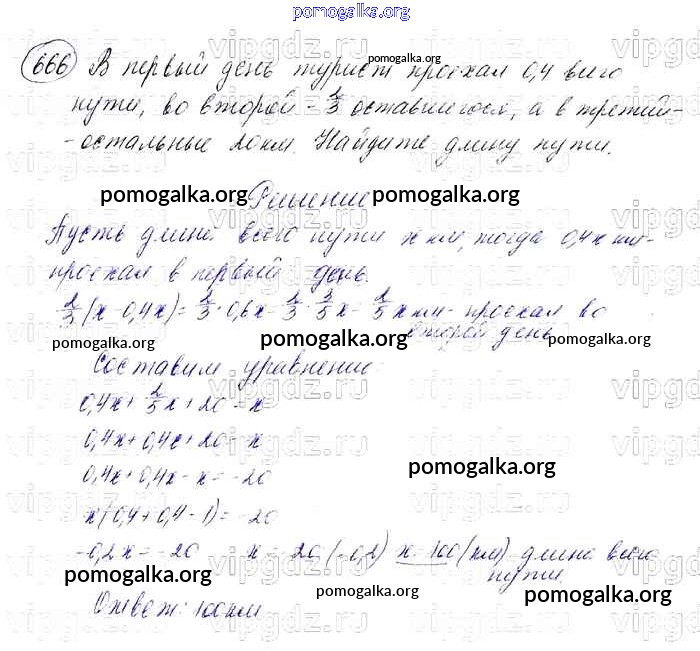 pomogalka.org
666 В первый день турист проехал 0,4 всего
pomogalka.org
пути, во второй - 2/3 оставшегося, а в третий -
- остальные 20 км. Найдите длину пути.
pomogalka.org Решение pomogalka.org
Пусть длина всего пути x км, тогда 0,4x км -
проехал в первый день.
2/3 (x - 0,4x) = 2/3 · 0,6x = 2/3 · 3/5 x = 2/5 x км - проехал во
второй день
pomogalka.org pomogalka.org pomogalka.org
Составим уравнение
0,4x + 2/5 x + 20 = x
0,4x + 0,4x + 20 = x
0,4x + 0,4x - x = -20
pomogalka.org
x(0,4 + 0,4 - 1) = -20
-0,2x = -20 x = -20 : (-0,2) x = 100 (км) длина всего
пути.
pomogalka.org pomogalka.org pomogalka.org
Ответ: 100 км
vipgdz.ru